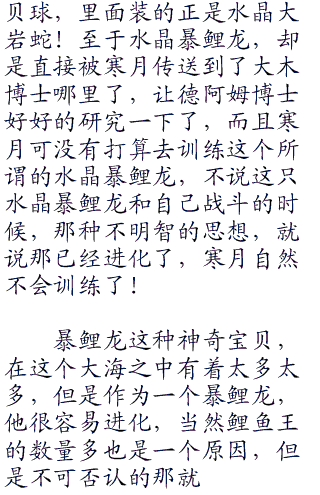 贝球，里面装的正是水晶大
岩蛇！至于水晶暴鲤龙，却
是直接被寒月传送到了大木
博士哪里了，让德阿姆博士
好好的研究一下了，而且寒
月可没有打算去训练这个所
谓的水晶暴鲤龙，不说这只
水晶暴鲤龙和自己战斗的时
候，那种不明智的思想，就
说那已经进化了，寒月自然
不会训练了！
暴鲤龙这种神奇宝贝，
在这个大海之中有着太多太
多，但是作为一个暴鲤龙，
他很容易进化，当然鲤鱼王
的数量多也是一个原因，但
是不可否认的那就